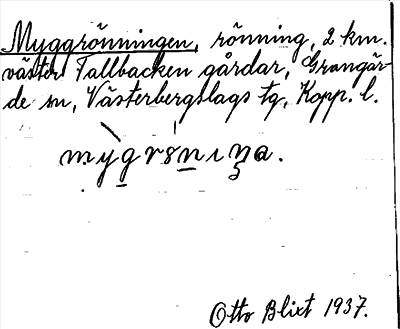 Myggrönningen, rönning, 2 km.
väster Tallbacken gårdar, Grangär-
de sn, Västerbergslags tg, Kopp. l.
Otto Blixt 1937.